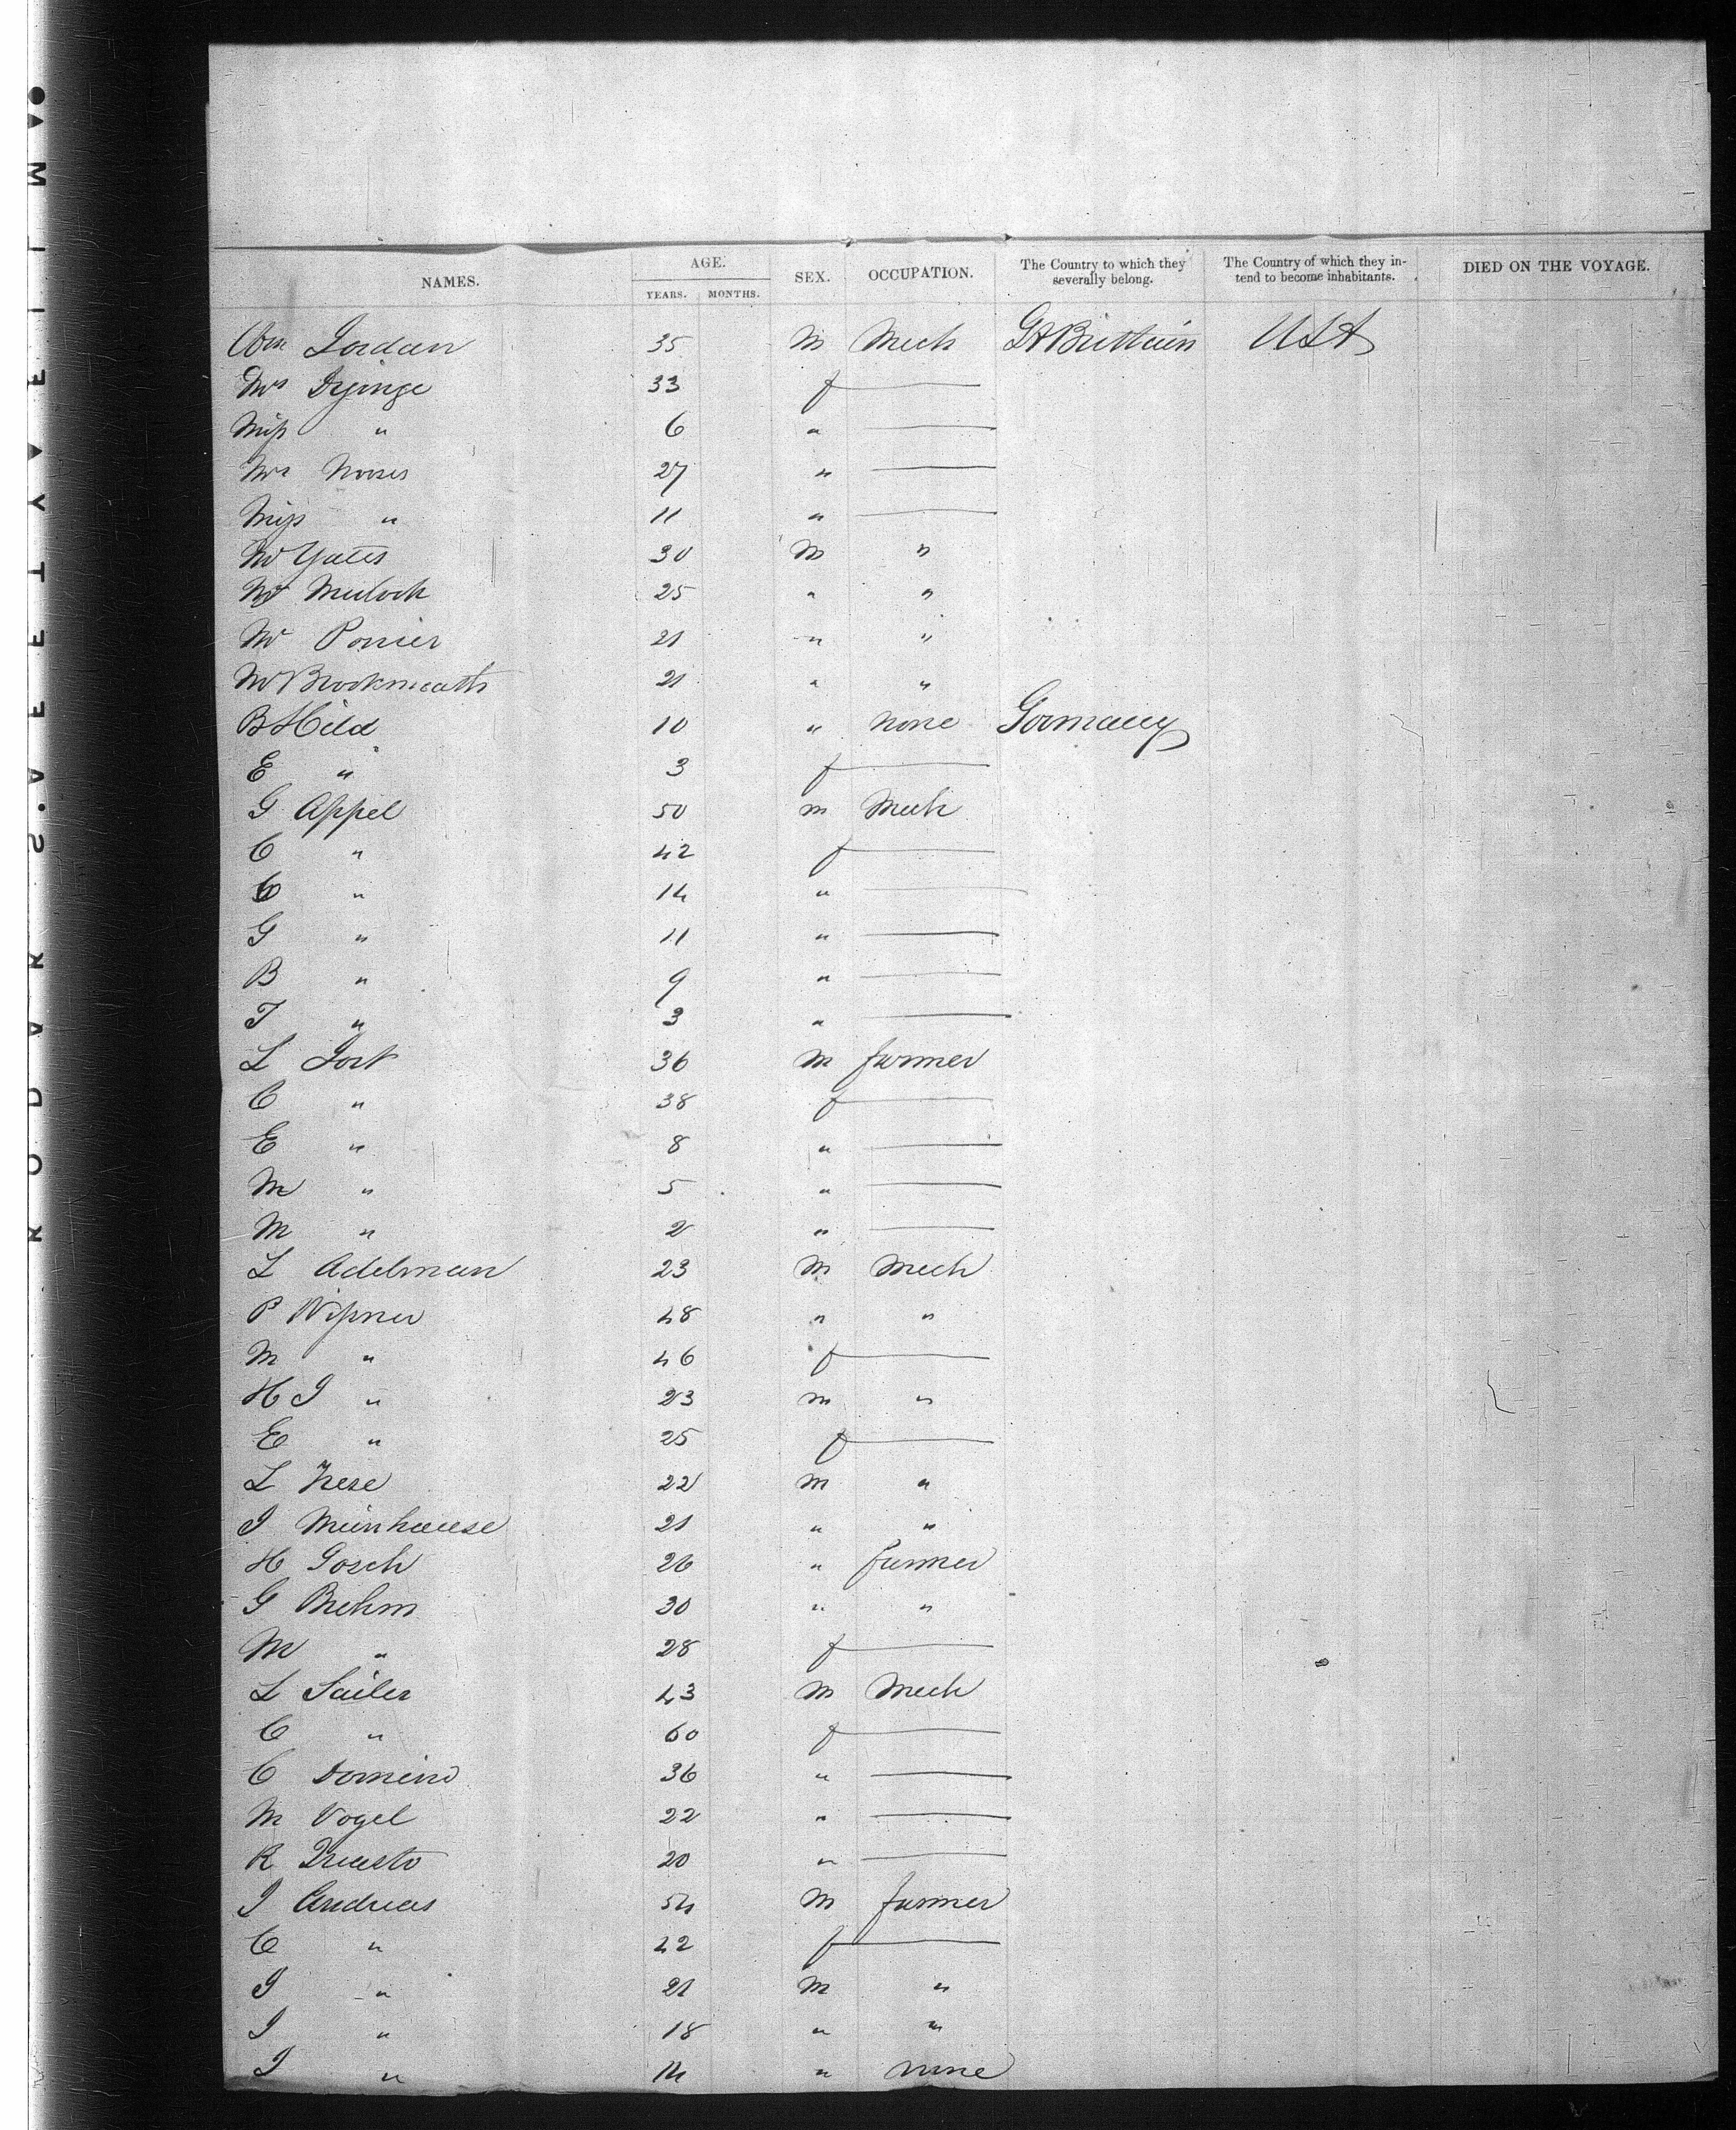 NAMES. AGE. SEX. OCCUPATION. The Country to which they severally belong. The Country of which they intend to become inhabitants. DIED ON THE VOYAGE.
YEARS. MONTHS.
Wm Jordan 35 M Mech Gt Brittain USA
Mrs 33 f
Miss " 6 "
Mrs 27 "
Miss " 11 "
Mr Yates 30 M "
Mr Mulock 25 " "
Mr 21 " "
Mr Brookmeath 21 " "
B Hild 10 " none Germany
E " 3 f
G Appel 50 m Mech
C " 42 f
" 14 "
G " 11 "
B " 9 "
T " 3 "
L 36 M farmer
C " 38 f
E " 8 "
M " 5 "
M " 2 "
L Adelman 23 M Mech
P Wissner 48 " "
M " 46 f
H J " 23 m "
E " 25 f
L 22 M "
J Munhause 21 " "
H Gosch 26 " farmer
G Brehm 30 " "
M " 28 f
L Sailer 43 M Mech
C " 60 f
C Domino 36 "
M Vogel 22 "
R 20 "
J Andreas 54 M farmer
C " 42 f
J " 21 M "
J " 18 " "
J " 14 " none